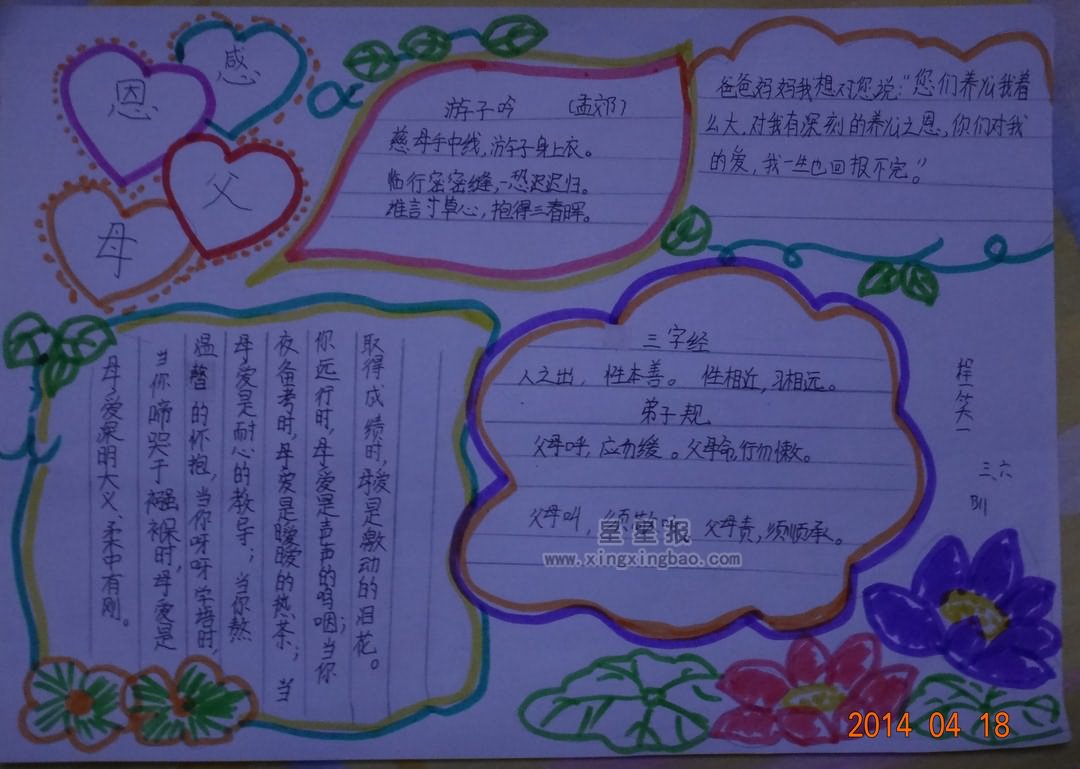 感
恩
父
母
游子吟 (孟郊)
慈母手中线,游子身上衣。
临行密密缝,恐迟迟归。
谁言寸草心,抱得三春晖。
爸爸妈妈我想对您说:"您们养么我着
么大,对我有深刻的养么之恩,你们对我
的爱,我一生也回报不完。"
母爱深明大义、柔中有刚。
当你啼哭于襁褓时,母爱是
温馨的怀抱,当你呀呀学语时,
母爱是耐心的教导;当你熬
夜备考时,母爱是暖暖的热茶;当
你远行时,母爱是声声的呜咽;当你
取得成绩时,母爱是激动的泪花。
三字经
人之出,性本善。性相近,习相远。
弟子规
父母呼,应勿缓。父母命,行勿懒。
父母叫,须敬听 父母责,须顺承。
笑一
三、六
B11
星星报
www.xingxingbao.com
2014 04 18